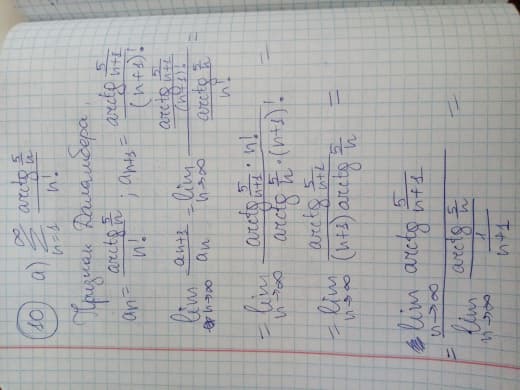 10 а) ∑_{n=1}^{∞} (arctg 5/n) / n!
Признак Даламбера.
a_n = (arctg 5/n) / n! ; a_{n+1} = (arctg 5/(n+1)) / (n+1)!
lim_{n→∞} a_{n+1} / a_n = lim_{n→∞} ((arctg 5/(n+1)) / (n+1)!) / ((arctg 5/n) / n!) =
= lim_{n→∞} (arctg 5/(n+1) · n!) / (arctg 5/n · (n+1)!) =
= lim_{n→∞} (arctg 5/(n+1)) / ((n+1) arctg 5/n) =
= (lim_{n→∞} arctg 5/(n+1)) / (lim_{n→∞} (arctg 5/n) / (1/(n+1))) =